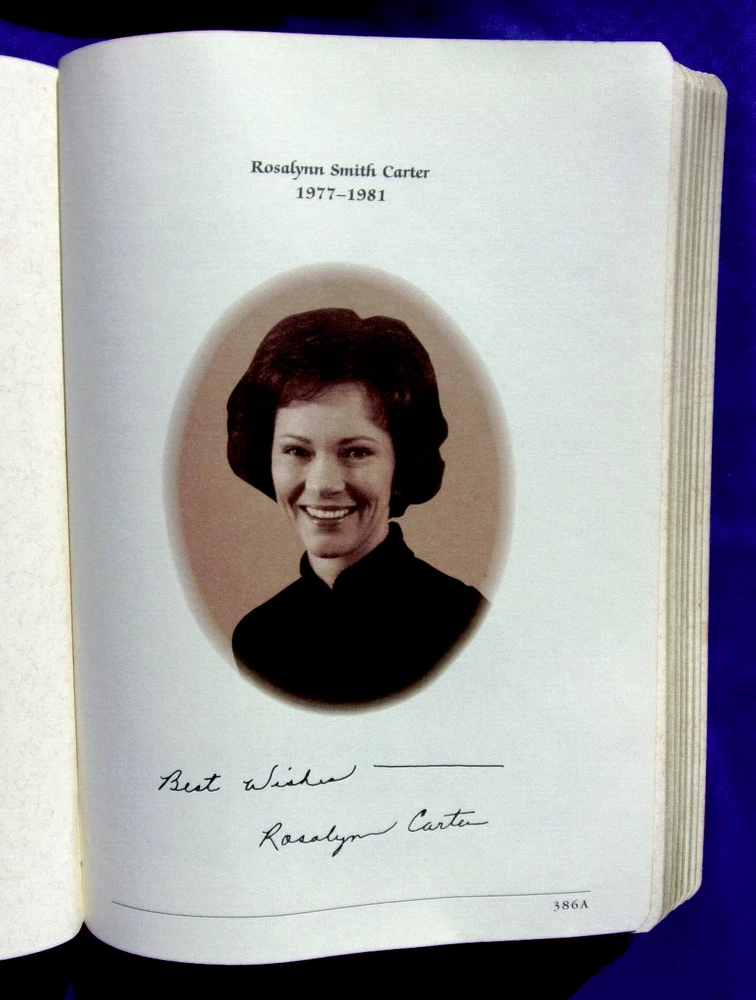 Rosalynn Smith Carter
1977–1981
Best Wishes
Rosalynn Carter
386A